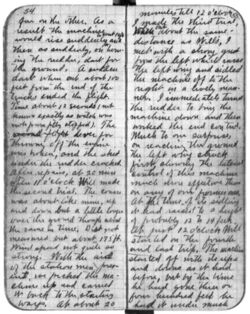 54
gun on the other. As a
result the machine
would rise suddenly to
then as suddenly, on turn-
ing the rudder, dart for
the ground. A sudden
dart when out about 100
feet from the end of the
tracks ended the flight.
Time about 12 seconds (not
known exactly as watch was
not promptly stopped). The
lever for
throwing off the engine
was broken, and the skid
under the rudder cracked.
After repairs, at 20 min.
after 11 o'clock Will made
the second trial. The course
was about like mine, up
and down but a little longer
over the ground though about
the same in time. Dist. not
measured but about 175 ft.
Wind speed not quite so
strong. With the aid
of the station men present,
we picked the ma-
chine up and carried
it back to the starting
ways. At about 20
minutes till 12 o'clock
I made the third trial.
When out about the same
distance as Will's, I
met with a strong gust
from the left which raised
the left wing and sidled
the machine off to the
right in a lively man-
ner. I immediately turned
the rudder to bring the
machine down and then
worked the end control.
Much to our surprise,
on reaching the ground
the left wing struck
first, showing the lateral
control of this machine
much more effective than
on any of our former ones.
At the time of its sidling
it had raised to a height
of probably 12 to 14 feet.
At just 12 o'clock Will
started on the fourth
and last trip. The machine
started off with its ups
and downs as it had
before, but by the time
he had gone three or
four hundred feet he
had it under much